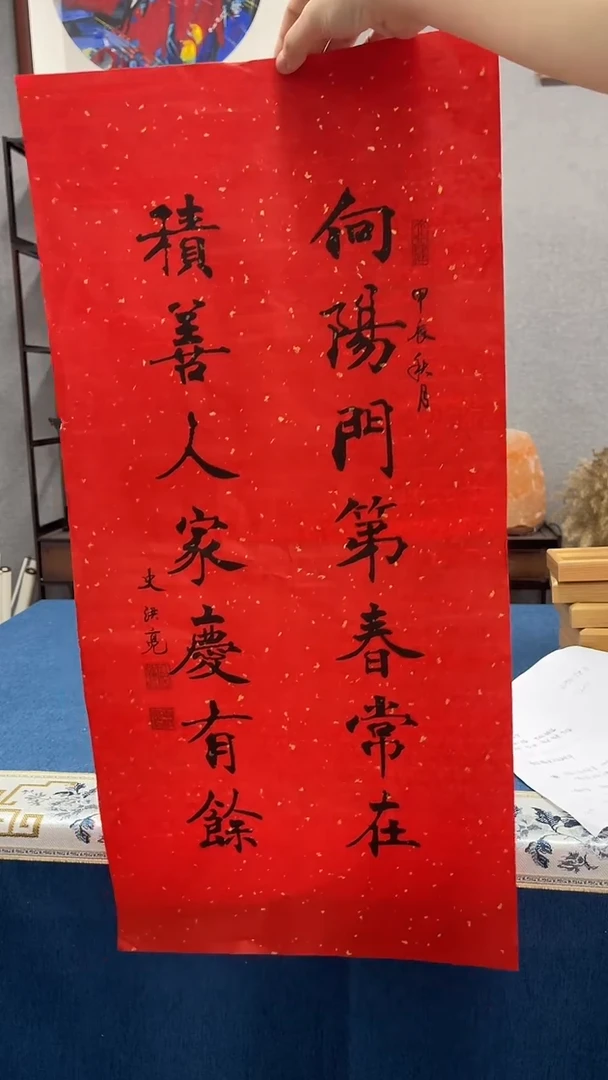 甲辰秋月
向陽門第春常在
積善人家慶有餘
史洪亮